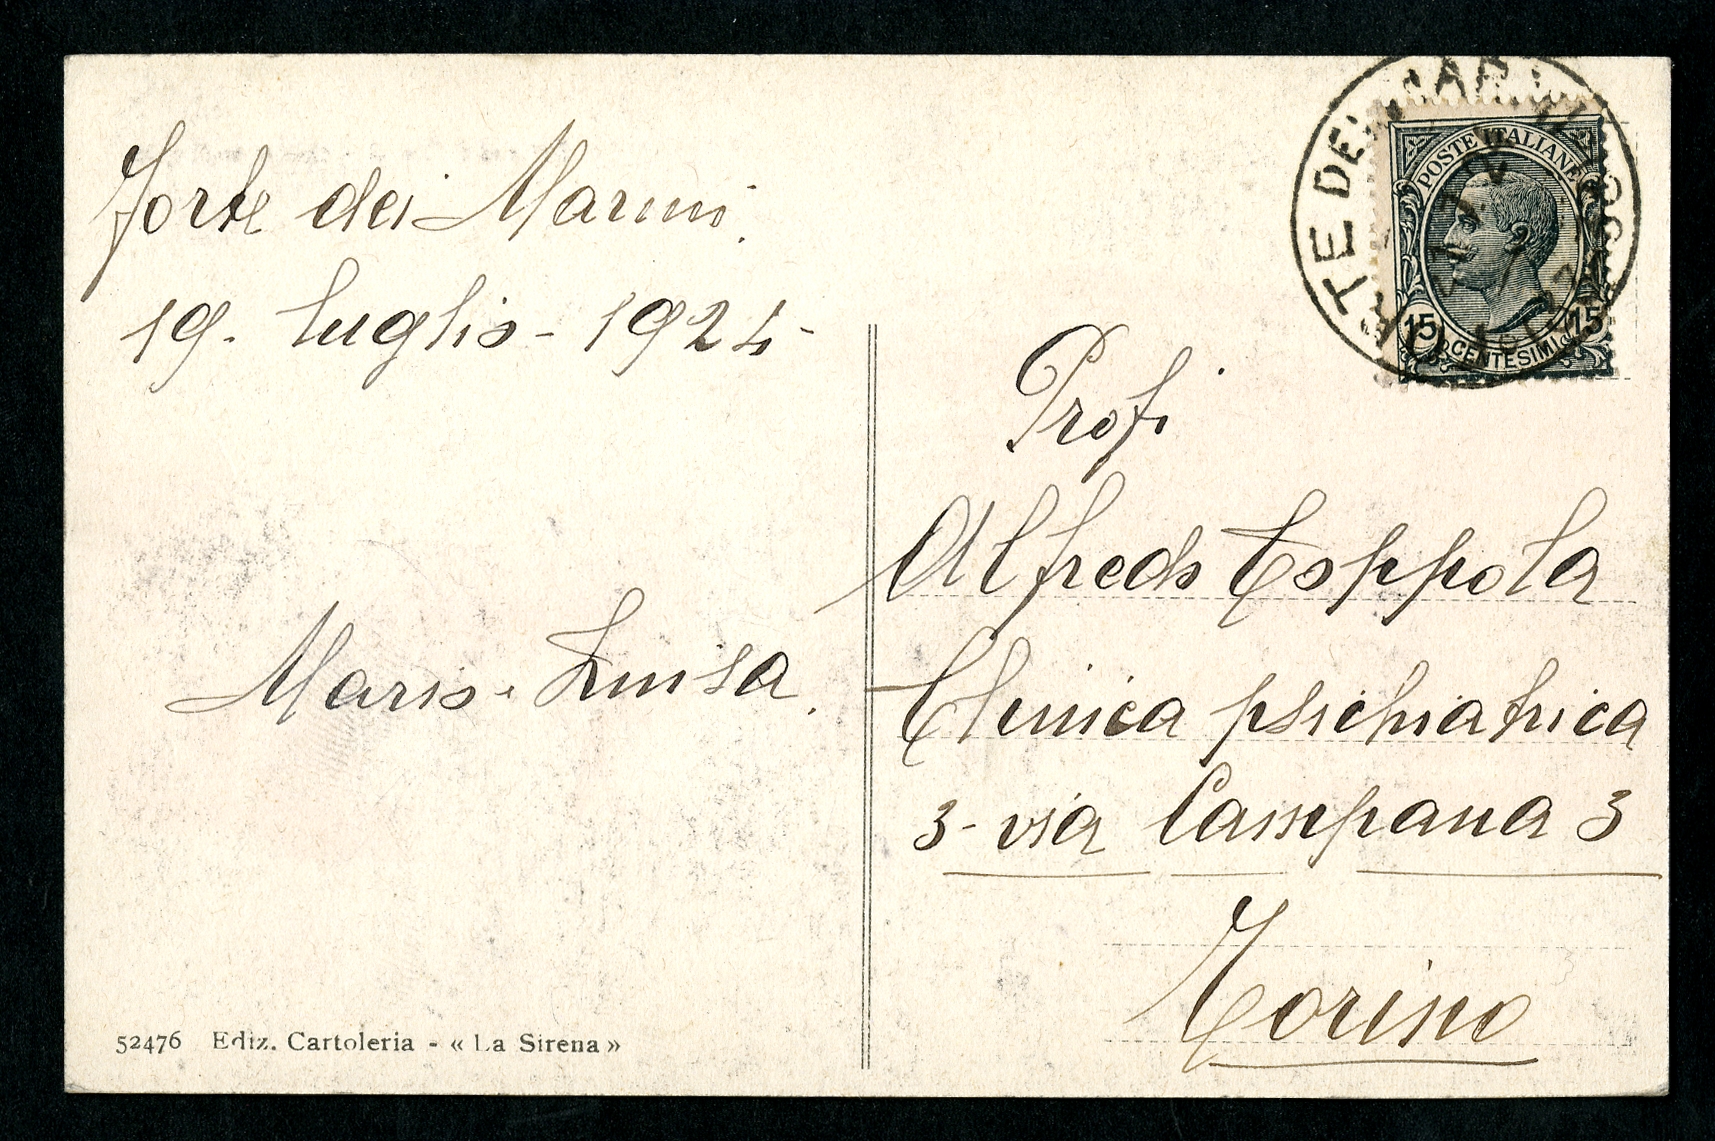 Forte dei Marmi.
19. luglio - 1924 -
Mario. Luisa.
52476 Ediz. Cartoleria - « La Sirena »
TE DEI MAR
POSTE ITALIANE
15 15
CENTESIMI
Prof.
Alfredo Coppola
Clinica psichiatrica
3 - via 3
Torino